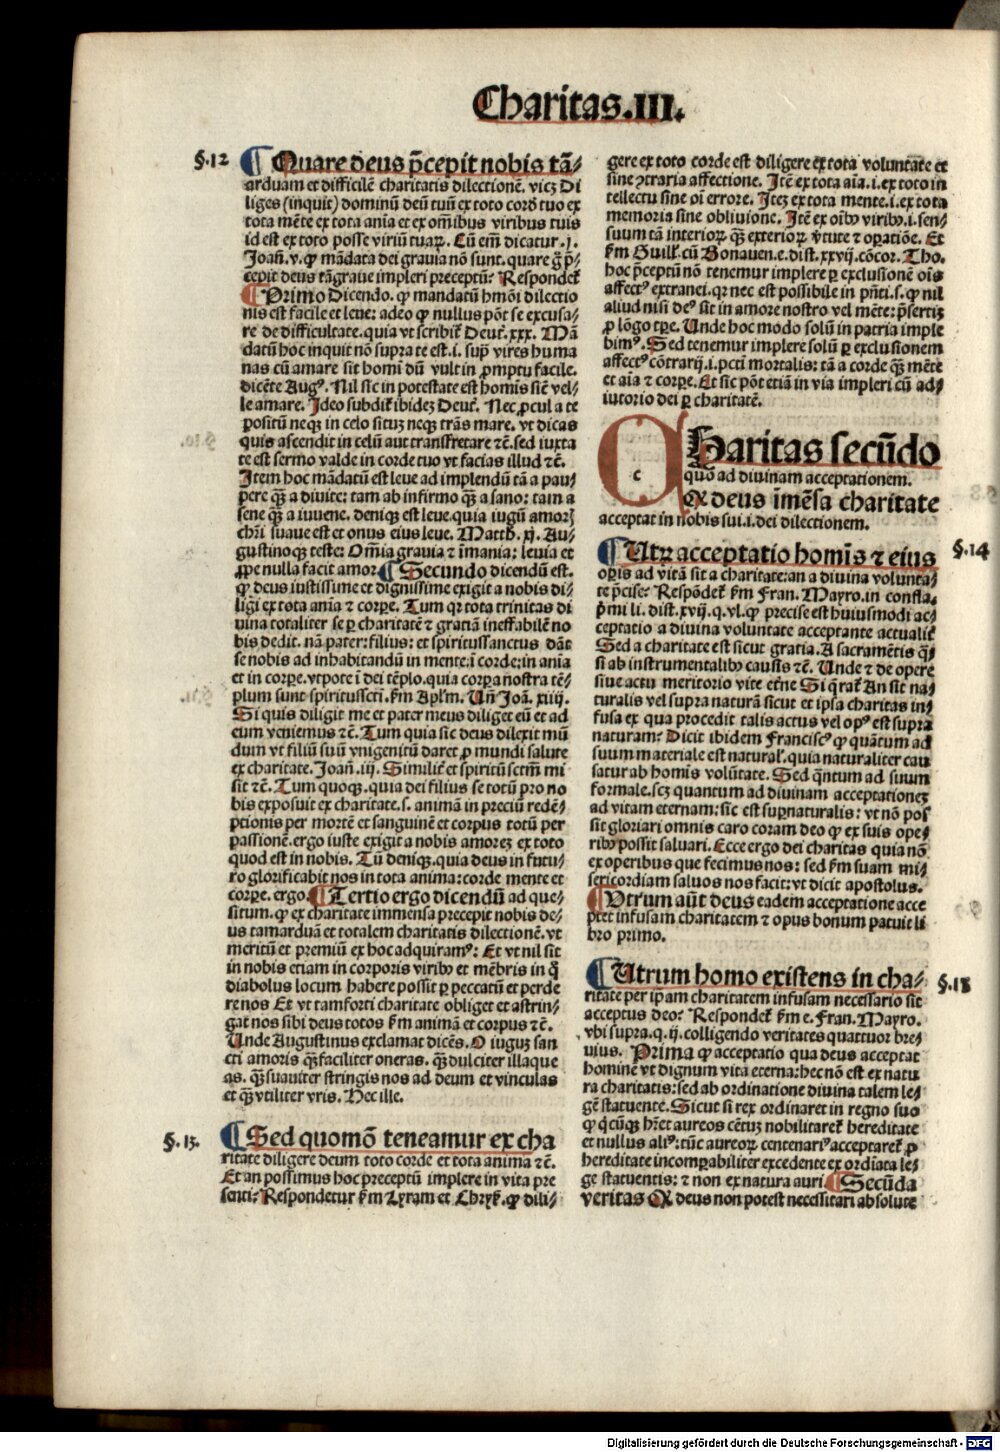 Charitas.III.
§.12
Quare deus p̄cepit nobis tā⸗
arduam et difficilē charitatis dilectionē. vicꝫ Di
liges (inquit) dominū deū tuū ex toto corð tuo ex
tota mēte ex tota anīa et ex om̄ibus viribus tuis
id est ex toto posse viriū tuaꝝ. Cū em̄ dicatur .j.
Joāñ.v. ꝙ mādata dei grauia nō sunt. quare g̊ p̄⸗
cepit deus tā graue impleri preceptū? Respondet̉
Primo Dicendo. ꝙ mandatū hmōi dilectio
nis est facile et leue: adeo ꝙ nullus pōt se excusa⸗
re de difficultate. quia vt scribit̉ Deut̉.xxx. Mā
datū hoc inquit nō supra te est .i. sup̱ vires huma
nas cū amare sit homī dū vult in ꝓmptu facile.
dicēte Augꝰ. Nil sic in potestate est homis sic̄ vel⸗
le amare. Ideo subdit̉ ibidez Deut̉. Nec ꝓcul a te
positū neqꝫ in celo situꝫ neqꝫ trās mare. vt dicas
quis ascendit in celū aut transfretare ⁊c̄. sed iuxta
te est sermo valde in corde tuo vt facias illud ⁊c̄.
Item hoc mādatū est leue ad implendū tā a pau
pere qꝫ̄ a diuite: tam ab infirmo qꝫ̄ a sano: tam a
sene qꝫ̄ a iuuene. deniqꝫ est leue. quia iugū amorꝭ
chr̄i suaue est et onus eius leue. Matth. xj. Au⸗
gustinoqꝫ teste: Om̄ia grauia ⁊ īmania: leuia et
ꝓpe nulla facit amor. Secundo dicendū est.
ꝙ deus iustissime et dignissime exigit a nobis di⸗
ligi ex tota anīa ⁊ corꝑe. Tum qꝛ tota trinitas di
uina totaliter se ꝑ charitatē ⁊ gratiā ineffabilē no
bis dedit. nā pater: filius: et spiritussanctus dāt
se nobis ad inhabitandū in mente: ī corde: in anīa
et in corꝑe. vtpote ī dei tēplo. quia corꝑa nostra tē⸗
plum sunt spiritussct̄i. s̄m Apl̄m. Un̄ Joā. xiiij.
Si quis diligit me et pater meus diliget eū et ad
eum veniemus ⁊c̄. Tum quia sic deus dilexit mū
dum vt filiū suū vnigenitū daret ꝓ mundi salute
ex charitate. Joāñ .iij. Similit̉ et spiritū sct̄m mi
sit ⁊c̄. Tum quoqꝫ. quia dei filius se totū pro no
bis exposuit ex charitate. s. animā in preciū redē⸗
ptionis per mortē et sanguinē et corpus totū per
passionē. ergo iuste exigit a nobis amorez ex toto
quod est in nobis. Tū deniqꝫ. quia deus in futu⸗
ro glorificabit nos in tota anima: corde mente et
corꝑe. ergo. Tertio ergo dicendū ad que⸗
situm. ꝙ ex charitate immensa precepit nobis de⸗
us tam arduā et totalem charitatis dilectionē. vt
meritū et premiū ex hoc adquiramꝰ: Et vt nil sit
in nobis etiam in corporis viribꝰ et mēbris in q̊
diabolus locum habere possit ꝑ peccatū et perde
re nos Et vt tam forti charitate obliget et astrin⸗
gat nos sibi deus totos s̄m animā et corpus ⁊c̄.
Unde Augustinus exclamat dicēs. O iuguꝫ san
cti amoris qꝫ̄ faciliter oneras. qꝫ̄ dulciter illaque
as. qꝫ̄ suauiter stringis nos ad deum et vinculas
et qꝫ̄ vtiliter vris. Hec ille.
§.13.
Sed quomō teneamur ex cha
ritate diligere deum toto corde et tota anima ⁊c̄.
Et an possimus hoc preceptū implere in vita pre
senti? Respondetur s̄m Lyram et Chryß. ꝙ dili⸗
gere ex toto corde est diligere ex tota voluntate et
sine ꝯtraria affectione. Itē ex tota aīa .i. ex toto in
tellectu sine oī errore. Itez ex tota mente .i. ex tota
memoria sine obliuione. Itē ex oībꝰ viribꝰ .i. sen⸗
suum tā interioꝝ qꝫ̄ exterioꝝ v̓tute ⁊ oꝑatiōe. Et
s̄m Guilł. cū Bonauen. e. dist. xxvij. cōcor. Tho.
hoc p̄ceptū nō tenemur implere ꝑ exclusionē oīs
affectꝰ extranei. qꝛ nec est possibile in pn̄ti. s. ꝙ nil
aliud nisi deꝰ sit in amore nostro vel mēte: p̄sertiꝫ
ꝑ lōgo tp̄e. Unde hoc modo solū in patria imple
bimꝰ. Sed tenemur implere solū ꝑ exclusionem
affectꝰ cōtrarij .i. pcti mortalis: tā a corde qꝫ̄ mēte
et aīa ⁊ corꝑe. Et sic pōt etiā in via impleri cū ad⸗
iutorio dei ꝑ charitatē.
c
Charitas secūdo
quo ad diuinam acceptationem.
Q deus īmēsa charitate
acceptat in nobis sui .i. dei dilectionem.
§.14
Utꝝ acceptatio homīs ⁊ eius
oꝑis ad vitā sit a charitate: an a diuina volunta⸗
te p̄cise? Respōdet̉ s̄m Fran. Mayro. in confla.
p̄mi li. dist. xvij. q. vl. ꝙ precise est huiusmodi ac⸗
ceptatio a diuina voluntate acceptante actualit̉
Sed a charitate est sicut gratia. A sacramētis q̄⸗
si ab instrumentalibꝰ causis ⁊c̄. Unde ⁊ de opere
siue actu meritorio vite et̓ne Si q̄rat̉ An sit na⸗
turalis vel supra naturā sicut et ipsa charitas in⸗
fusa ex qua procedit talis actus vel opꝰ est supra
naturam? Dicit ibidem Franciscꝰ ꝙ quātum ad
suum materiale est natural̉. quia naturaliter cau
satur ab homīs volūtate. Sed q̄ntum ad suum
formale. scꝫ quantum ad diuinam acceptationeꝫ
ad vitam eternam: sic est suꝑnaturalis: vt nō pos
sit gloriari omnis caro coram deo ꝙ ex suis ope⸗
ribꝰ possit saluari. Ecce ergo dei charitas quia nō
ex operibus que fecimus nos: sed s̄m suam mi⸗
sericordiam saluos nos facit: vt dicit apostolus.
Utrum aūt deus eadem acceptatione acce
ptet infusam charitatem ⁊ opus bonum patuit li
bro primo.
§.15
Utrum homo existens in cha⸗
ritate per ip̄am charitatem infusam necessario sit
acceptus deo? Respondet̉ s̄m e. Fran. Mayro.
vbi supra. q. ij. colligendo veritates quattuor bre⸗
uius. Prima ꝙ acceptatio qua deus acceptat
hominē vt dignum vita eterna: hec nō est ex natu
ra charitatis: sed ab ordinatione diuina talem le⸗
gē statuente. Sicut si rex ordinaret in regno suo
ꝙ q̇cūqꝫ hr̄et aureos cētuꝫ nobilitaret̉ hereditate
et nullus aliꝰ: tūc aureoꝝ centenariꝰ acceptaret̉ ꝓ
hereditate incomꝑabiliter excedente ex ordīata le⸗
ge statuentis: ⁊ non ex natura auri. Secūda
veritas Q deus non potest necessitari absolute
Digitalisierung gefördert durch die Deutsche Forschungsgemeinschaft - DFG